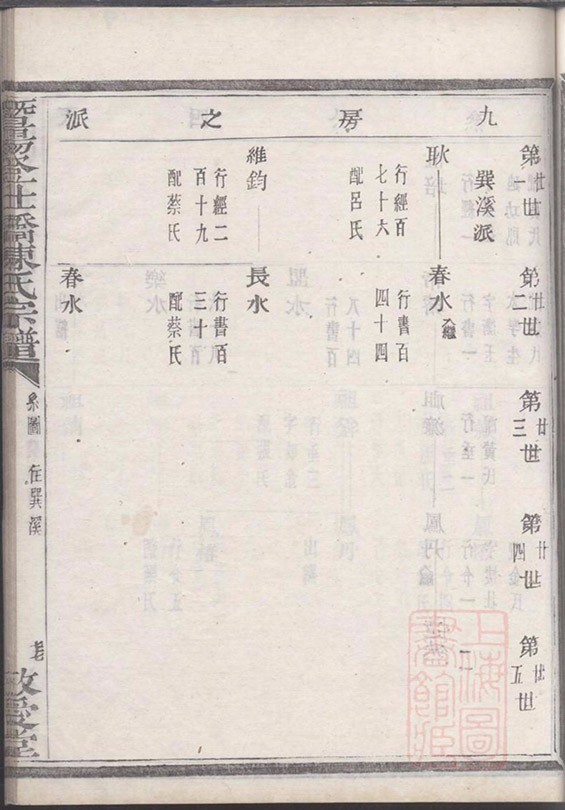 九房之派
第廿一世
第廿二世
第廿三世
第廿四世
第廿五世
巽溪派
耿
行經百
七十六
配呂氏
春水 入繼
行書百
四十四
維鈞
行經二
百十九
配蔡氏
長水
行書百
三十
配蔡氏
春水
暨陽
橋陳氏宗譜
系圖
住巽溪
敬愛堂
上海圖
書館藏